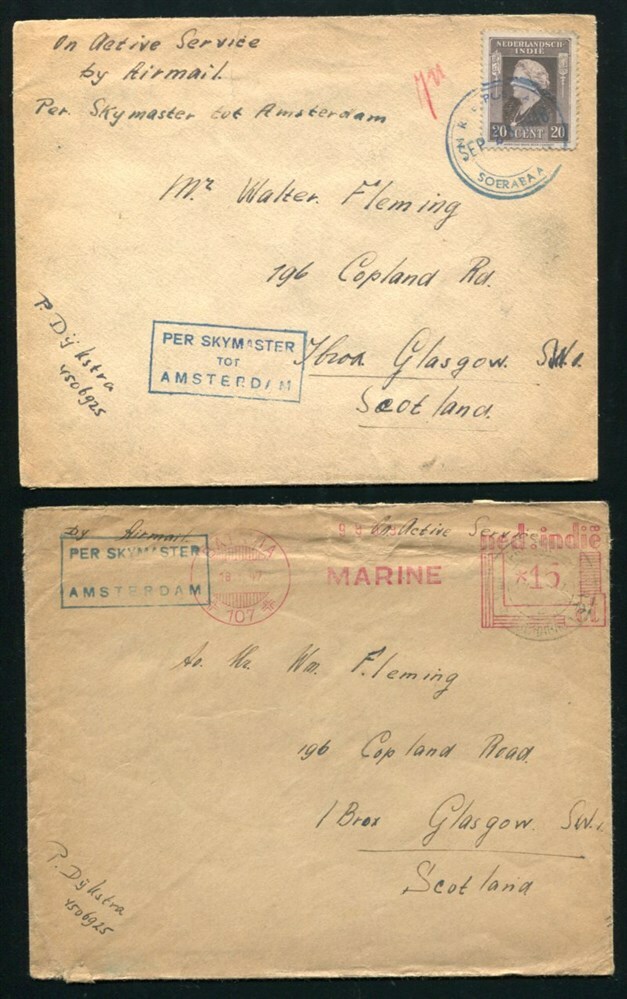 On Active Service
by Airmail.
Per. Skymaster tot Amsterdam
NEDERLANDSCH
INDIË
20 CENT 20
SEP
SOERABAA
Mr. Walter. Fleming
196 Copland Rd.
P. Dijkstra
4506925
PER SKYMASTER
TOT
AMSTERDAM
Ibrox Glasgow. S.W.1.
Scotland.
by Airmail.
On Active Service
PER SKYMASTER
AMSTERDAM
107
MARINE
ned. indië
*15
To. Mr. Wm. Fleming
196 Copland Road.
IBrox Glasgow. S.W.1.
Scotland
P. Dijkstra
4506925